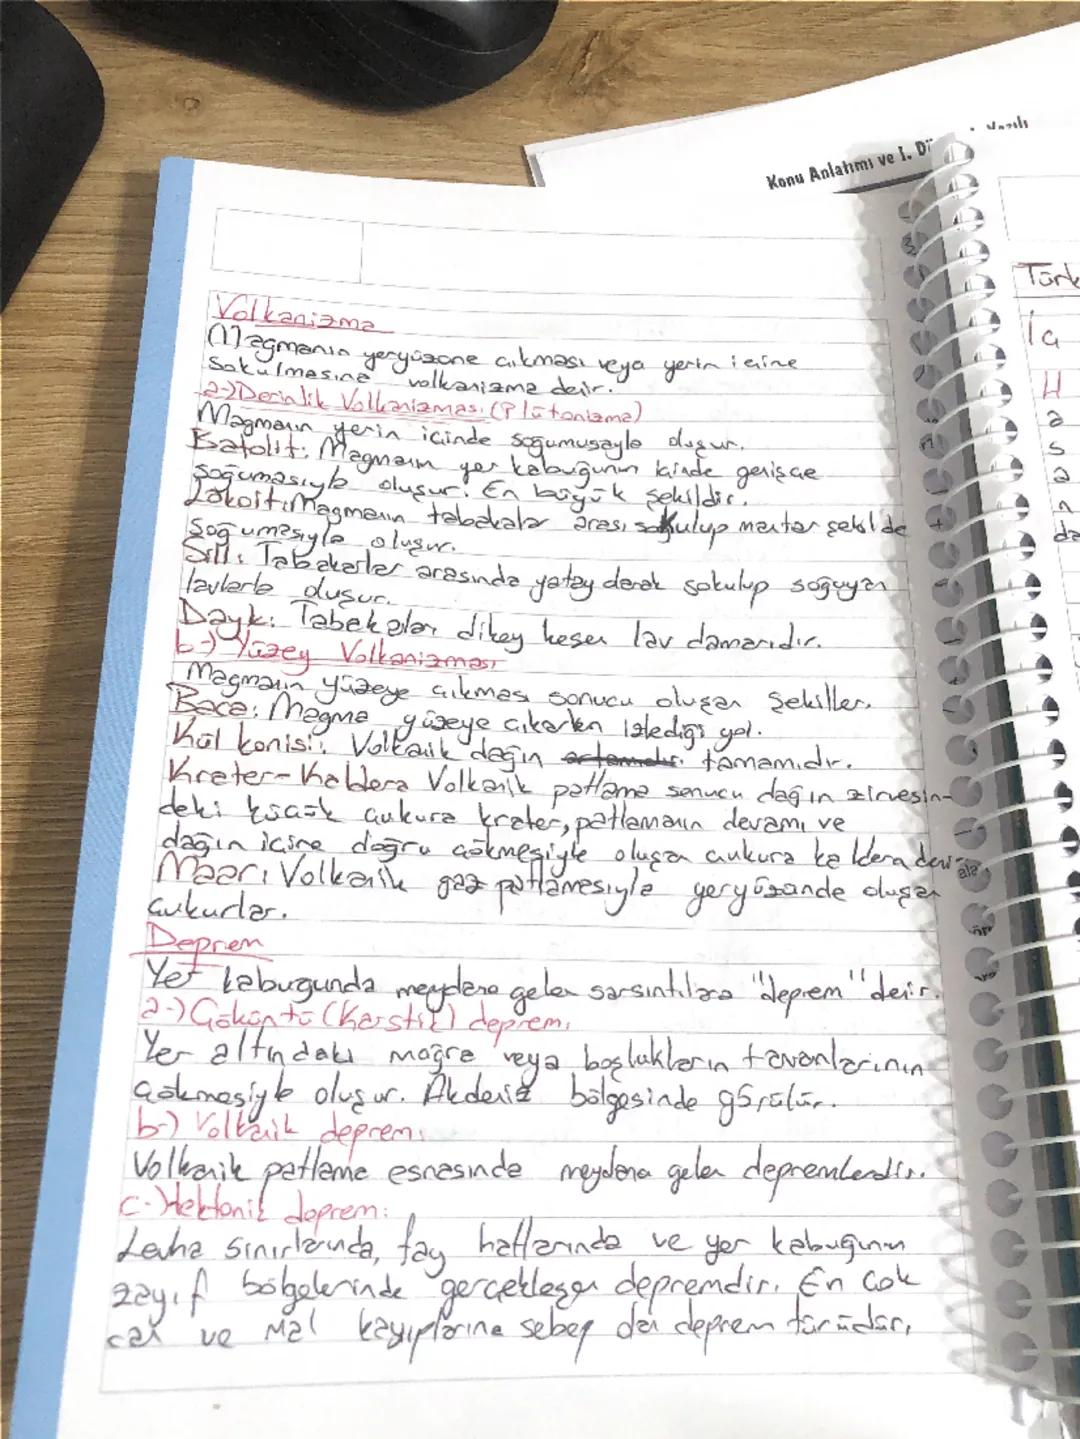 Konu Anlatımı ve I. Dö
Yazılı
Volkanizma
Magmanın yeryüzüne çıkması veya yerin içine
Sokulmasına volkanizma denir.
a-) Derinlik Volkanizması (Plütonizma)
Magmanın yerin içinde soğumusayla oluşur.
Batolit: Magmanın yer kabuğunun içinde genişçe
soğumasıyla oluşur. En büyük şekildir.
Lakolit: Magmanın tabakalar arası sokulup mantar şeklide
soğumasıyla oluşur.
Sill: Tabakarlar arasında yatay derek sokulup soğuyan
lavlarla oluşur.
Dayk: Tabekaları dikey kesen lav damarıdır.
b-) Yüzey Volkanizması
Magmanın yüzeye çıkması sonucu oluşan şekiller.
Baca: Magma yüzeye çıkarken izlediği yol.
Kül konisi: Volkanik dağın tamamıdır.
Krater-Kaldera Volkanik patlama sonucu dağın zirvesin-
deki küçük çukura krater, patlamanın devamı ve
dağın içine doğru çökmesiyle oluşan çukura kaldera denir
Maar: Volkanik gaz patlamesiyle yeryüzünde oluşan
çukurlar.
Deprem
Yer kabugunda meydana gelen sarsıntılara "deprem" denir.
a-) Çöküntü (Karstik) deprem:
Yer altındaki mağra veya boşlukların tavanlarının
çökmesiyle oluşur. Akdeniz bölgesinde görülür.
b-) Volkanik deprem:
Volkanik patlama esnasında meydana gelen depremlerdir.
c-) Tektonik deprem:
Levha sınırlarında, fay hatlarında ve yer kabuğunun
zayıf bölgelerinde gerçekleşen depremdir. En çok
can ve mal kayıplarına sebep olan deprem türüdür.
Türk
İç
H
a
s
a
n
da